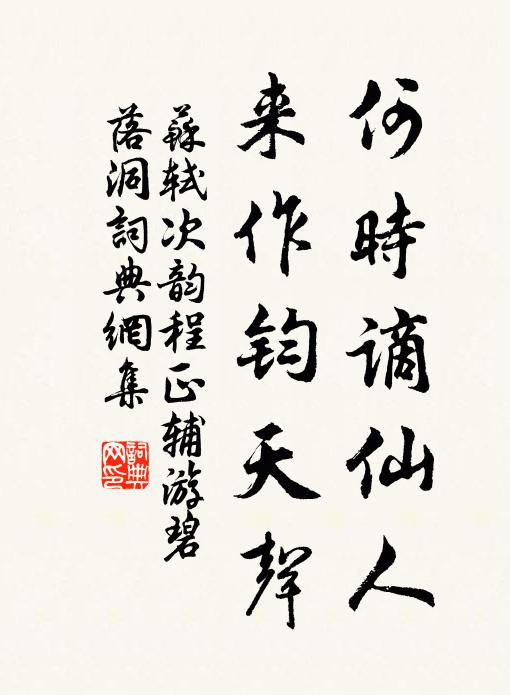 何時谪仙人
来作钧天聲
蘇轼次韵程正辅游碧
落洞詞典網集
詞典
网印